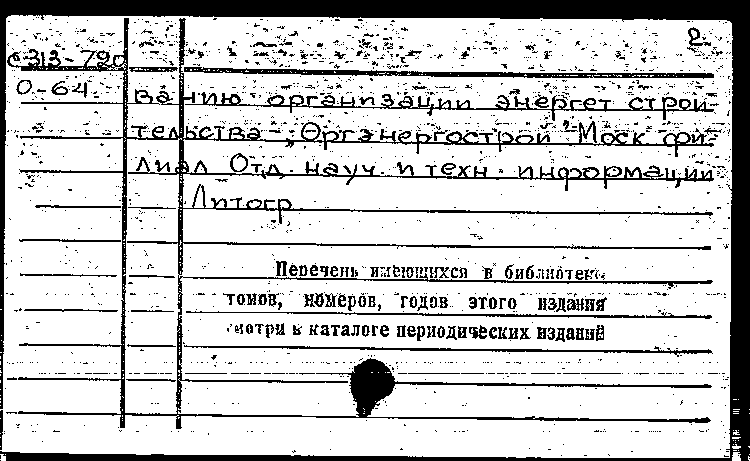 2.
С313-790
0-64.
ванию организации энергет строи-
тельства-"Оргэнергострой" Моск фи-
лиал Отд. науч. и техн. информации
Литогр.
Перечень имеющихся в библиотеке
томов, номеров, годов этого издания
смотри в каталоге периодических изданий